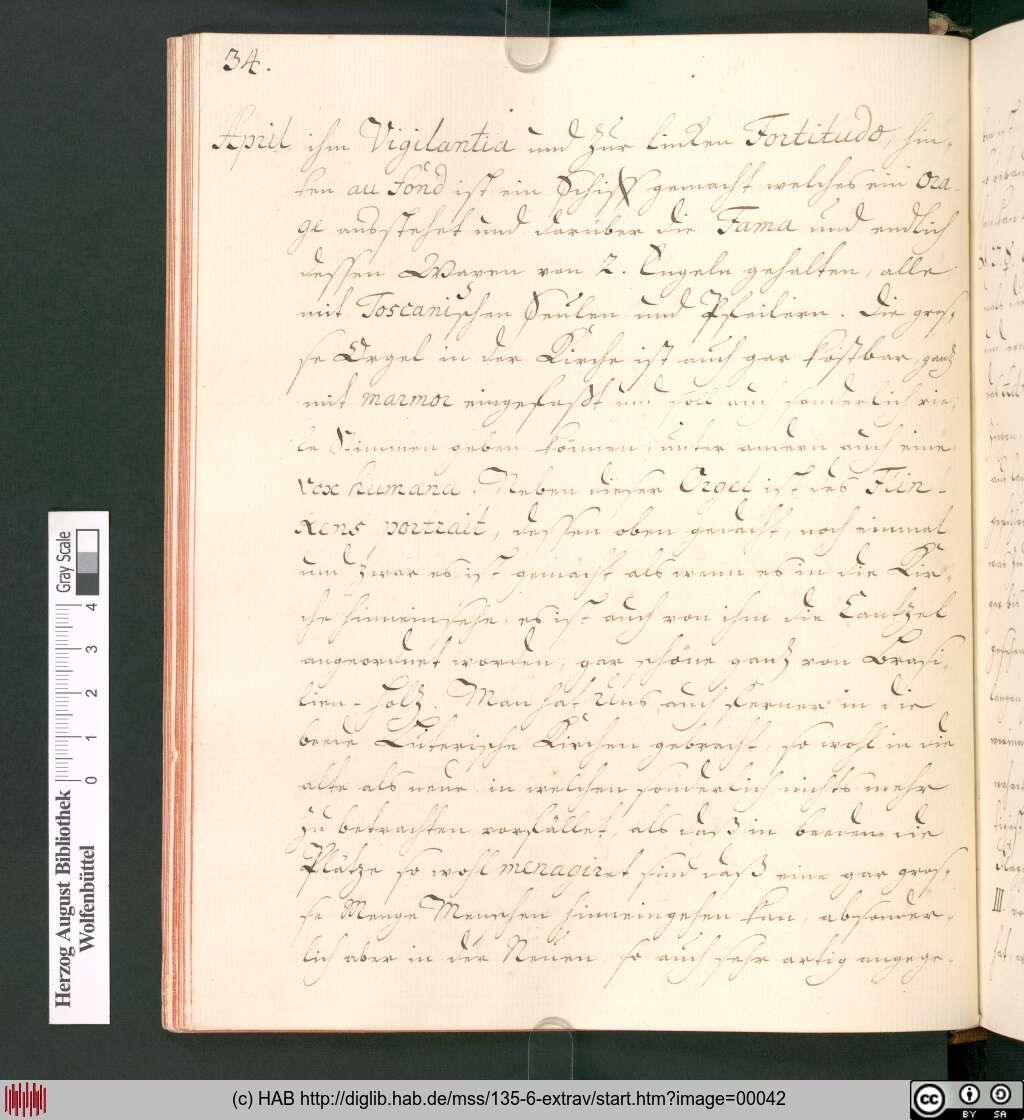 34.
April ihm Vigilantia und zur lincken Fortitudo, hin-
ten au fond ist ein Schiff gemacht welches ein ora-
ge ausstehet und darüber die Fama und endlich
dessen Wapen von 2. Engeln gehalten, alle
mit Toscanischen Seulen und Pfeilern. Die gros-
se Orgel in der Kirche ist auch gar kostbar, gantz
mit marmor eingefaßt und soll gar sonderlich vie-
le Stimmen geben können, unter andern auch eine
vox humana. Neben dieser Orgel ist des Flin-
kens portrait, dessen oben gedacht, noch einmal
und zwar es ist gemacht als wenn es in die Kir-
che hinneinsehe, es ist auch von ihm die Cantzel
angeordnet worden, gar schöne gantz von Brasi-
lien-Holtz. Man hat Uns auch ferner in die
beede Luterische Kirchen gebracht, so wohl in die
alte als neue, in welchen sonderlich nichts mehr
zu betrachten vorfället, als daß in beeden die
Plätze so wohl menagiret sind daß eine gar gros-
se Menge Menschen hinneingehen kan, absonder-
lich aber in der Neuen, so auch sehr artig angege-
Herzog August Bibliothek
Wolfenbüttel
0 1 2 3 4
Gray Scale
(c) HAB http://diglib.hab.de/mss/135-6-extrav/start.htm?image=00042
cc BY SA